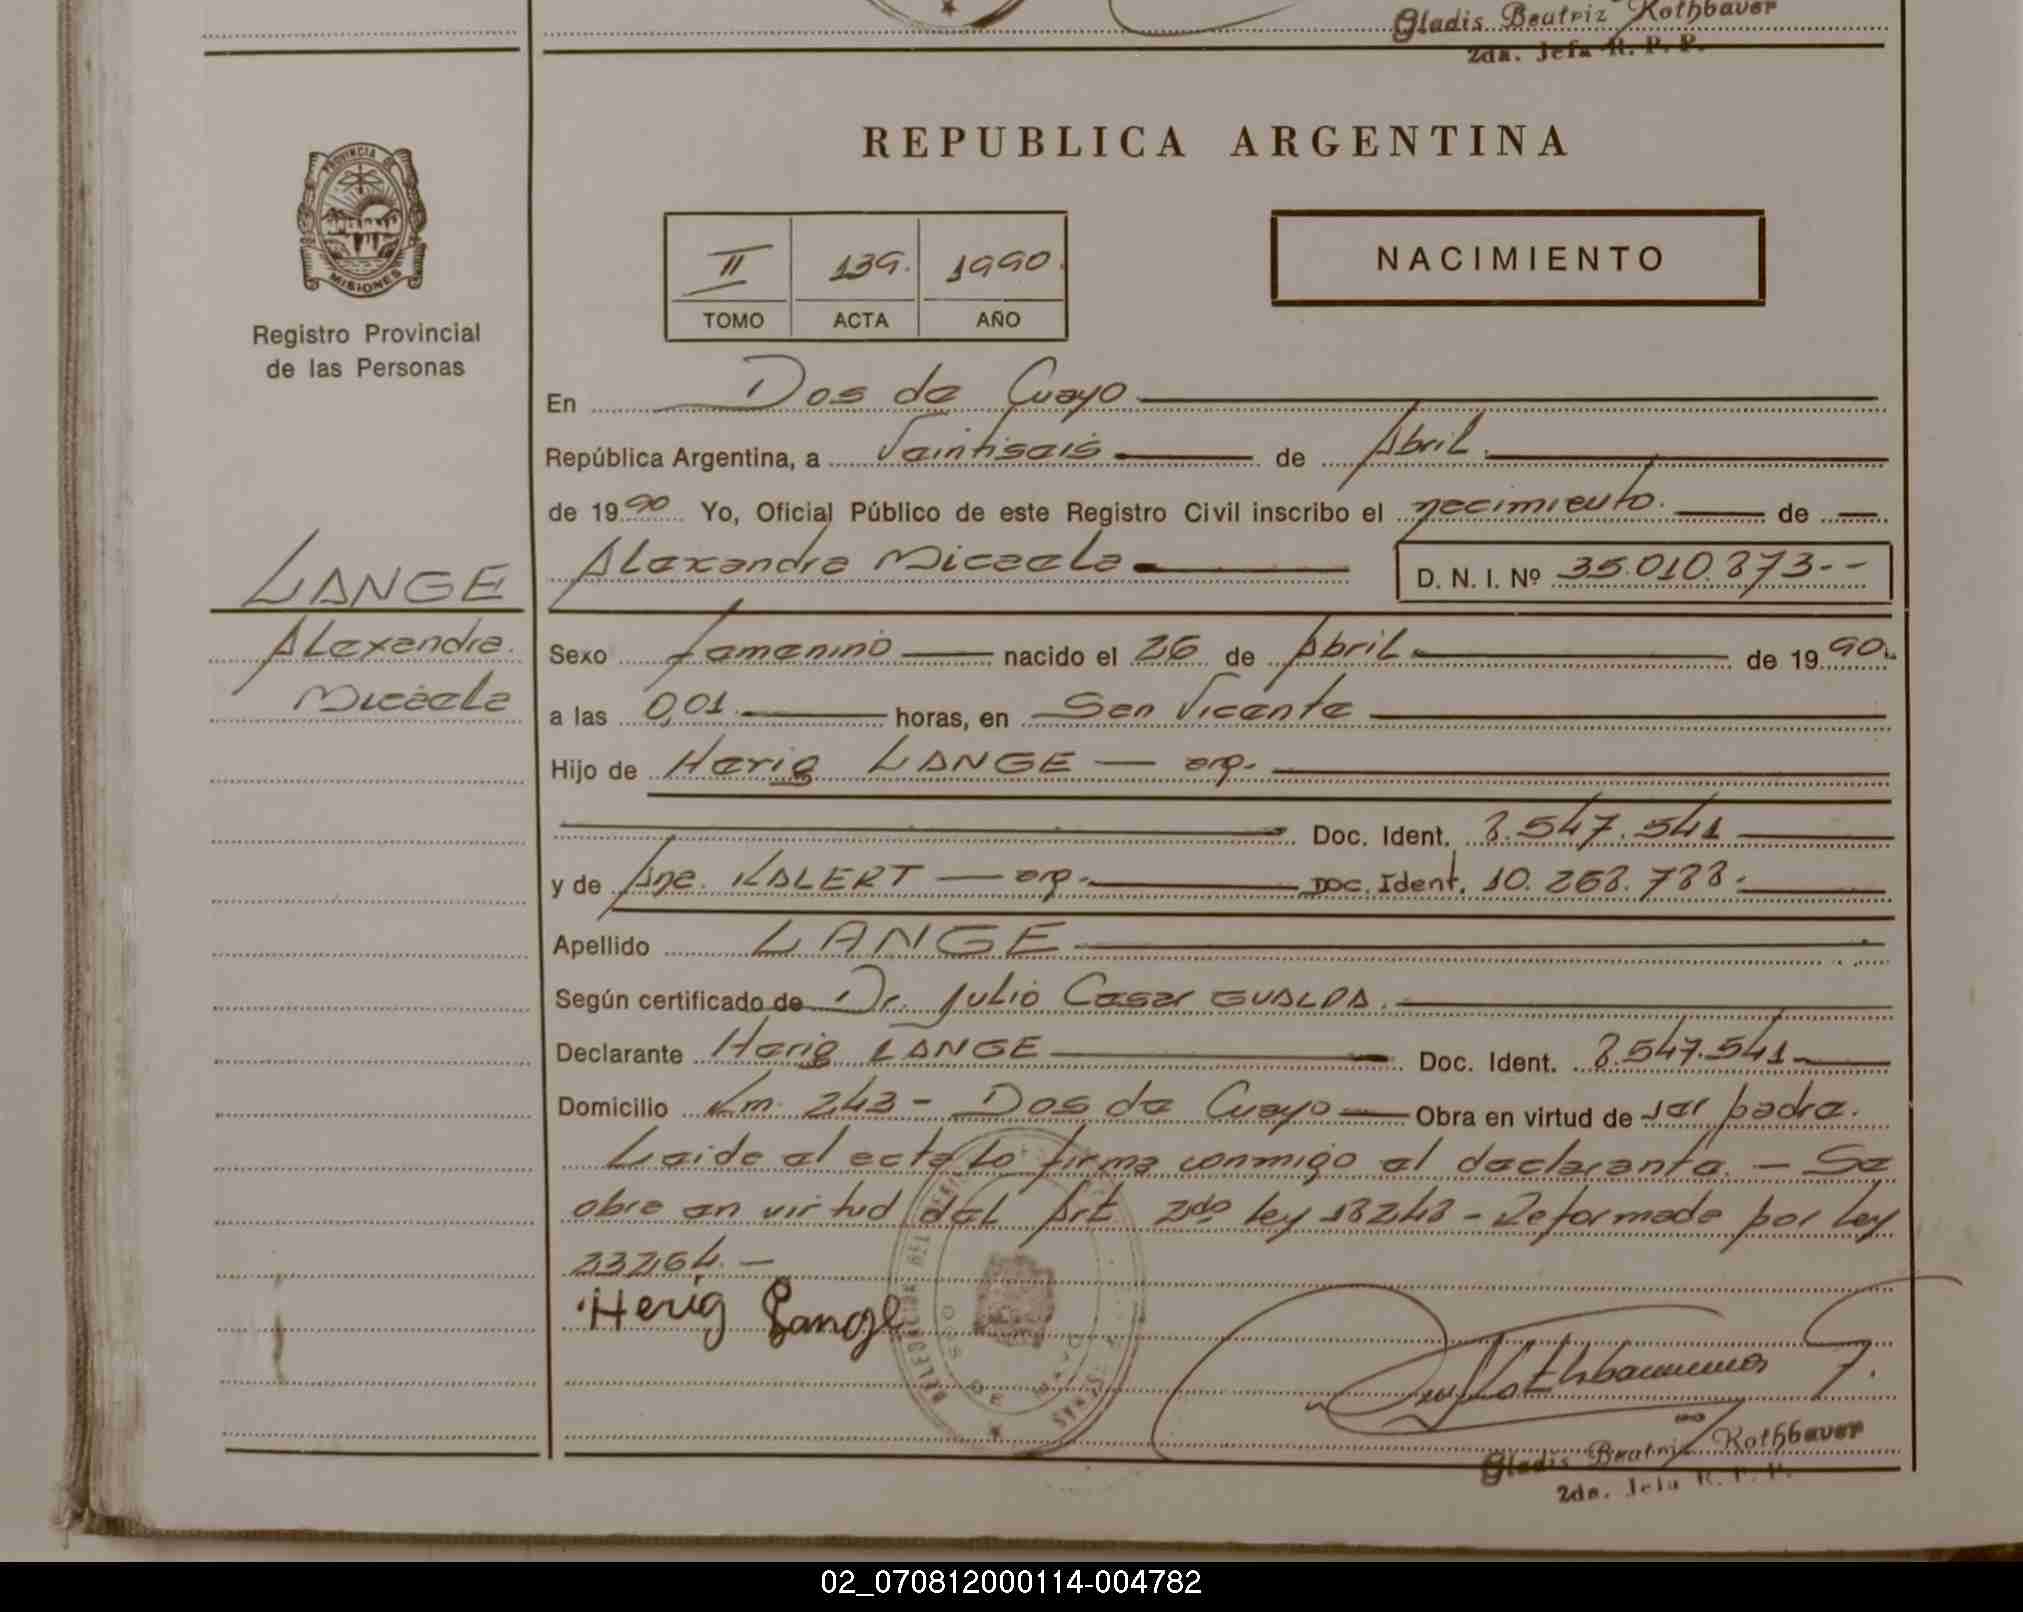 Gladis Beatriz Rothbauer
2da. Jefa R. P. P.
REPUBLICA ARGENTINA
PROVINCIA DE
MISIONES
Registro Provincial
de las Personas
II 139. 1990.
TOMO ACTA AÑO
NACIMIENTO
En Dos de Mayo
República Argentina, a Veintiseis de Abril
de 1990 Yo, Oficial Público de este Registro Civil inscribo el nacimiento. de
LANGE
Alexandra Micaela D. N. I. Nº 35.010.873--
Alexandra
Micaela
Sexo femenino nacido el 26 de Abril de 1990.
a las 0,01 horas, en San Vicente
Hijo de Herig LANGE — arg.
Doc. Ident. 8.547.541
y de Ana KALERT — arg. Doc. Ident. 10.268.788.
Apellido LANGE
Según certificado de Dr. Julio Cesar GUALDA.
Declarante Herig LANGE Doc. Ident. 8.547.541
Domicilio Km. 243 - Dos de Mayo Obra en virtud de ser padre.
Leida el acta la firma conmigo el declarante. - Se
obra en virtud del Art 2do ley 18248 - Reformada por ley
23264. -
Herig Lange
Gladis Beatriz Rothbauer
2da. Jefa R. P. P.
02_070812000114-004782